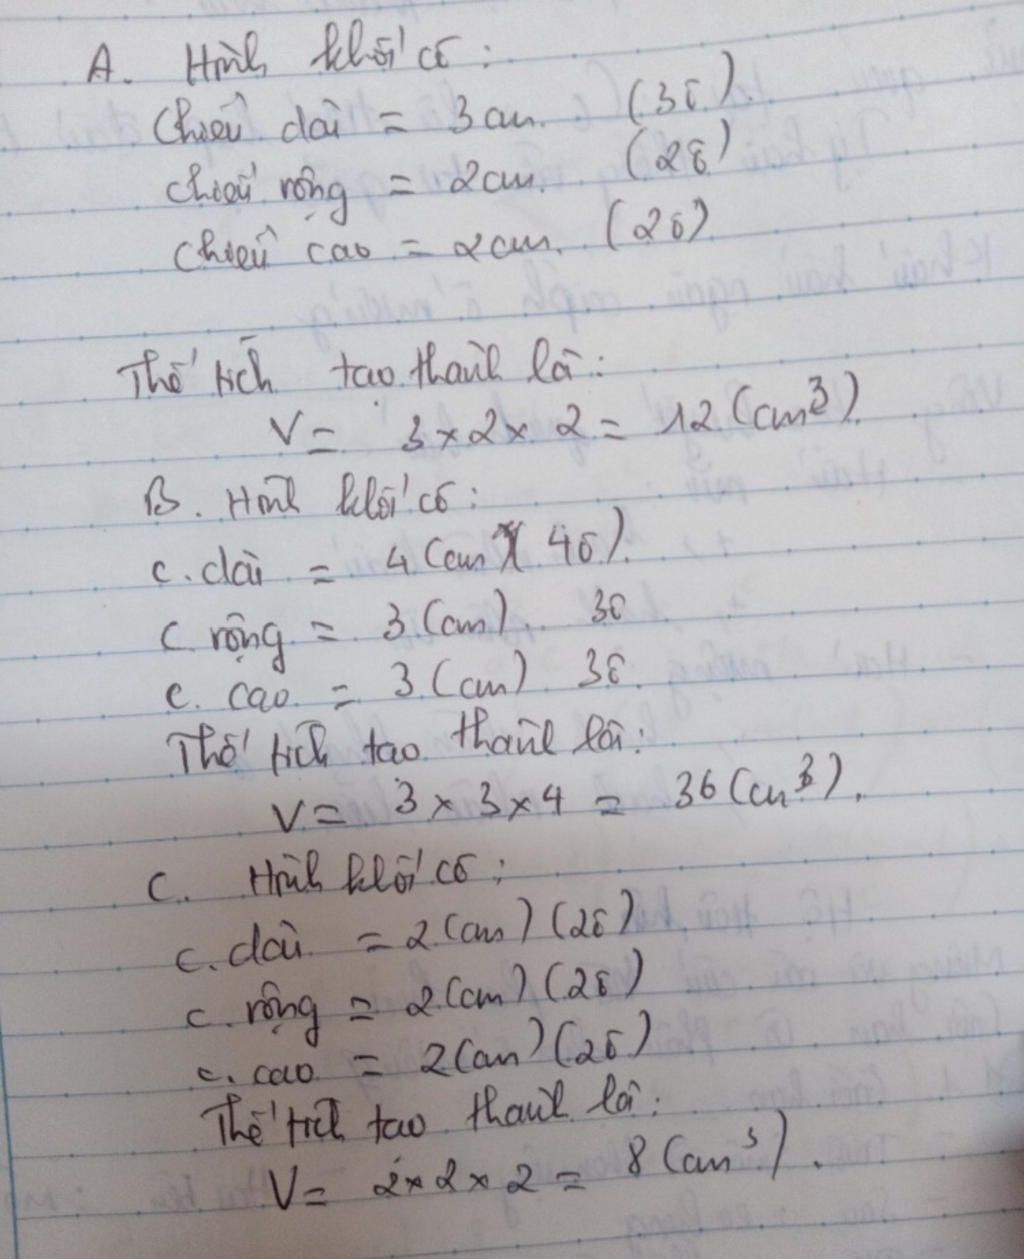 A. Hình khối có:
Chiều dài = 3cm. (3ô).
chiều rộng = 2cm. (2ô)
chiều cao = 2cm. (2ô)
Thể tích tạo thành là:
V = 3 x 2 x 2 = 12 (cm³).
B. Hình khối có:
c. dài = 4 (cm) (4ô).
c rộng = 3 (cm). 3ô
c. cao = 3 (cm) 3ô.
Thể tích tạo thành là:
V = 3 x 3 x 4 = 36 (cm³).
C. Hình khối có:
c. dài = 2 (cm) (2ô)
c. rộng = 2 (cm) (2ô)
c. cao = 2 (cm) (2ô)
Thể tích tạo thành là:
V = 2 x 2 x 2 = 8 (cm³).